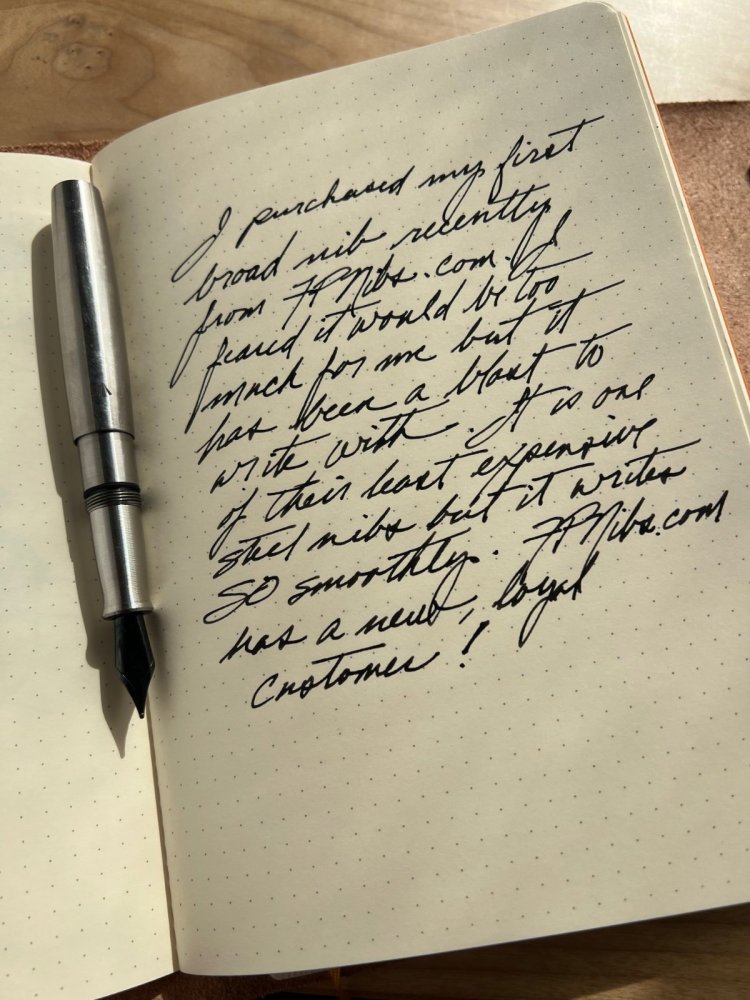 I purchased my first
broad nib recently
from FPNibs.com. I
feared it would be too
much for me but it
has been a blast to
write with. It is one
of their least expensive
steel nibs but it writes
SO smoothly. FPNibs.com
has a new, loyal
customer!